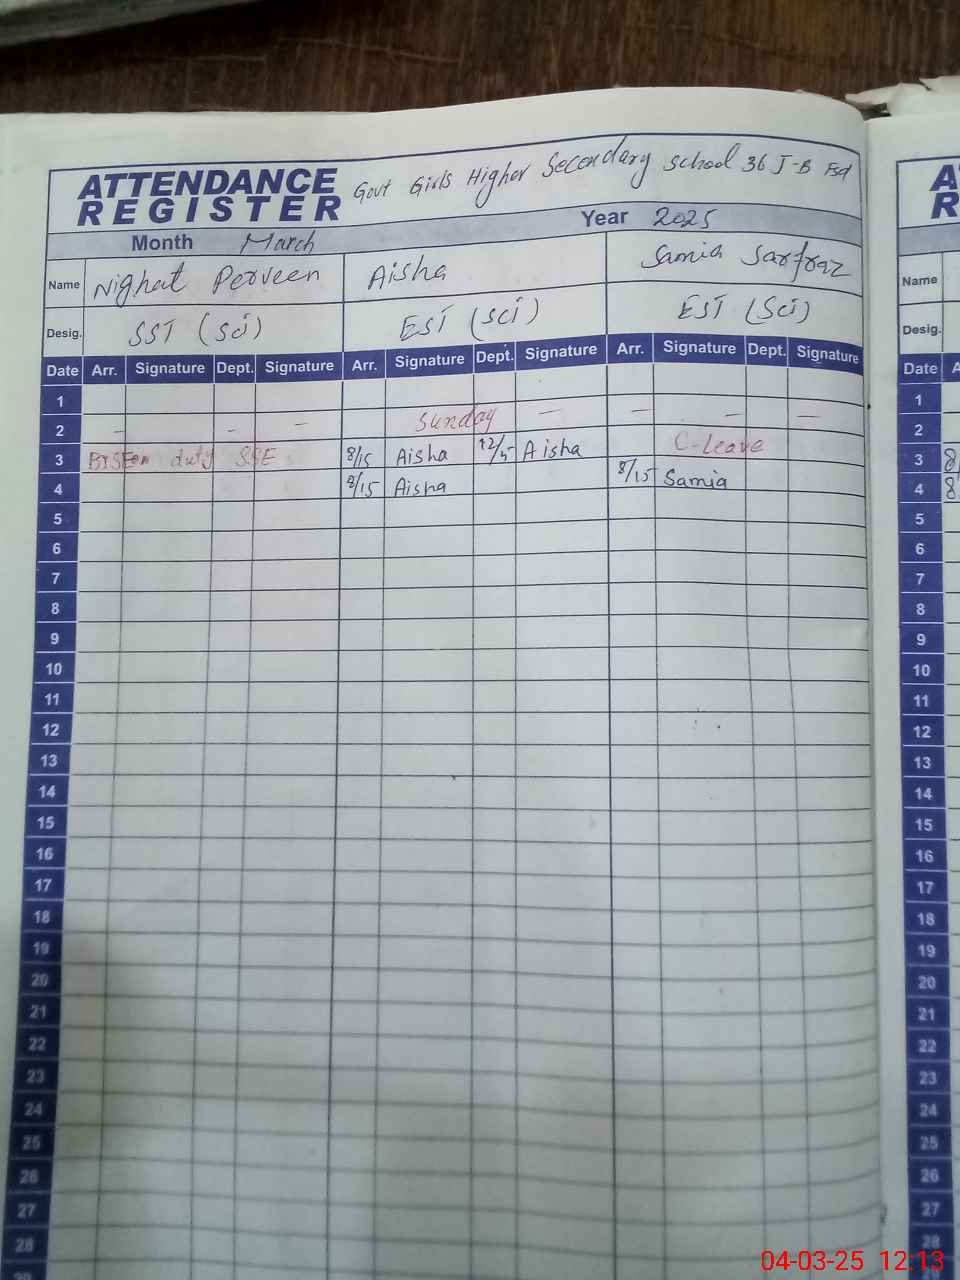 ATTENDANCE REGISTER Govt Girls Higher Secondary School 36 J-B Fsd
Month March Year 2025
Name Nighat Perveen Aisha Samia Sarfraz
Desig. SST (Sci) EST (Sci) EST (Sci)
Date Arr. Signature Dept. Signature Arr. Signature Dept. Signature Arr. Signature Dept. Signature
1
2 – – – Sunday – – – –
3 duty SSE 8/15 Aisha Aisha C-leave
4 8/15 Aisha 8/15 Samia
5
6
7
8
9
10
11
12
13
14
15
16
17
18
19
20
21
22
23
24
25
26
27
28
Name
Desig.
Date
1
2
3 8
4 8
5
6
7
8
9
10
11
12
13
14
15
16
17
18
19
20
21
22
23
24
25
26
27
28
04-03-25 12:13